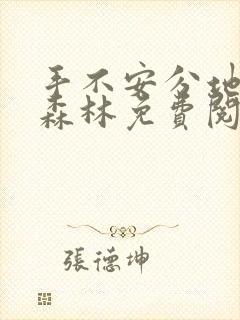 手不安分地
森林免費閱
張德坤